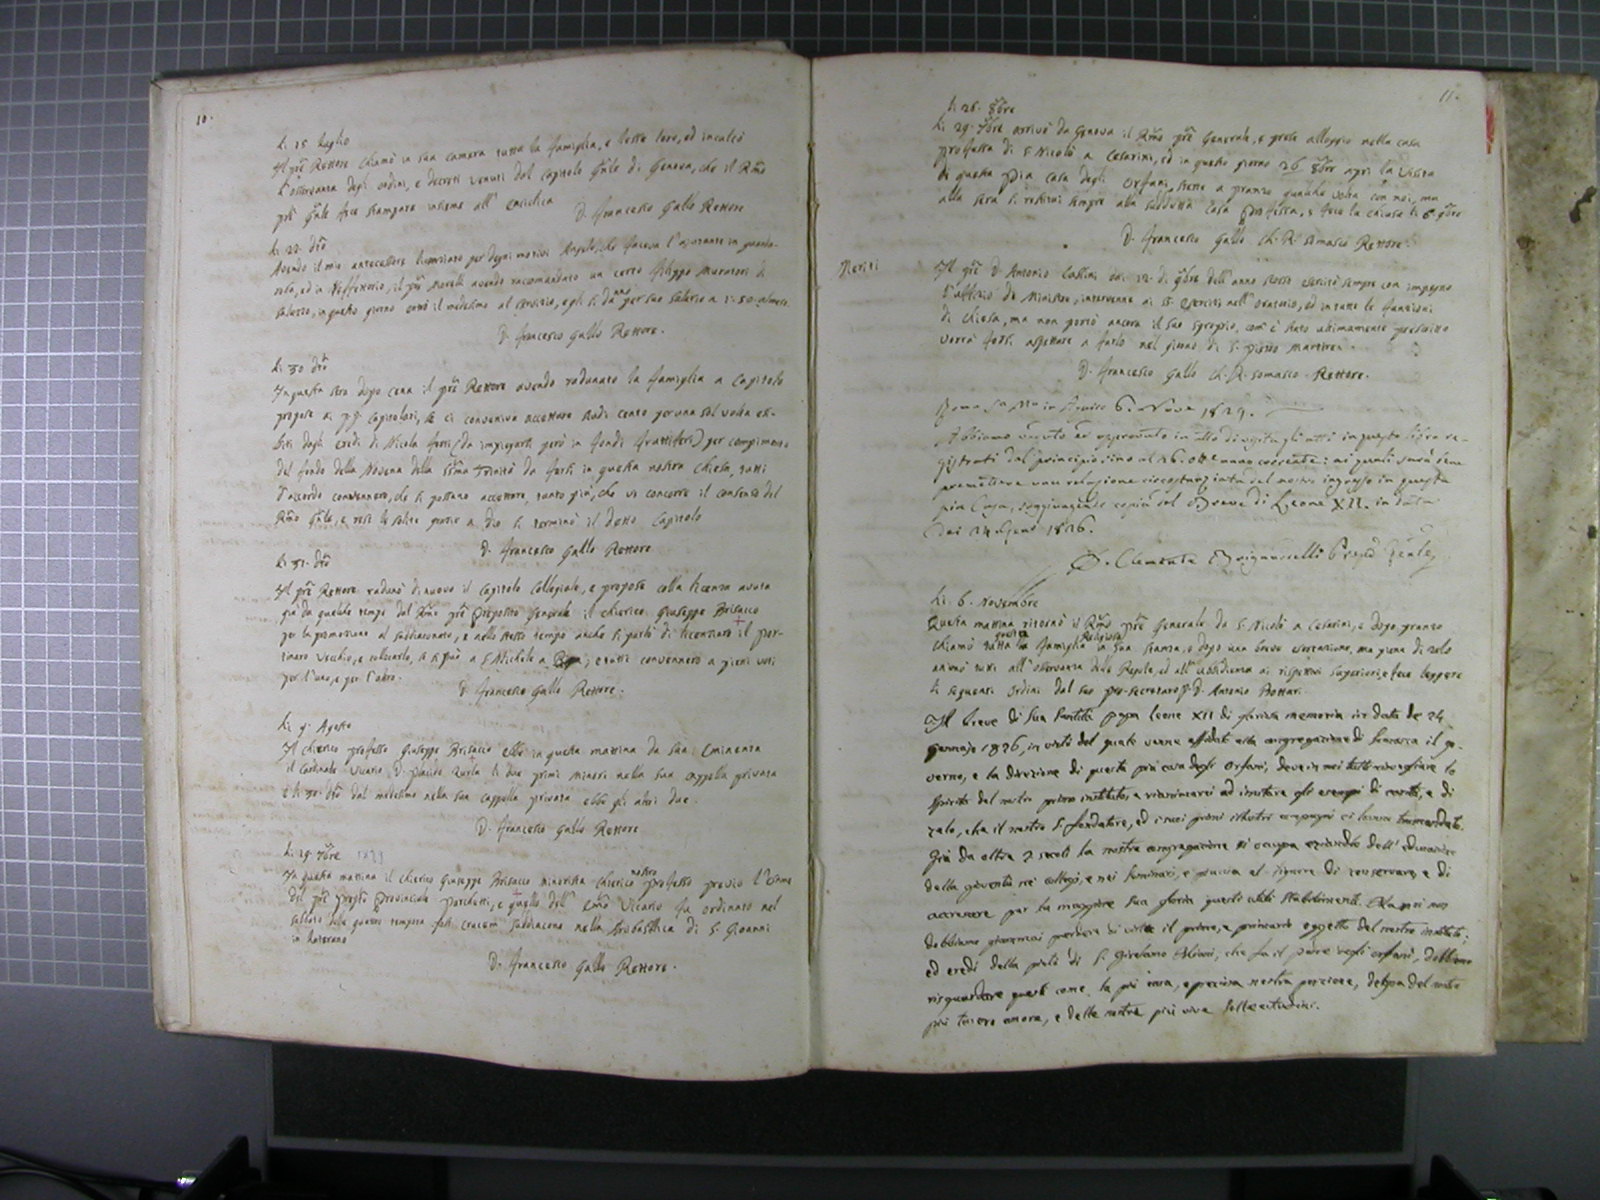 10.
Li 15 Luglio
Il prē Rettore chiamò in sua camera tutta la famiglia, e lesse loro, ed inculcò
l'osservanza degli ordini, e decreti venuti dal Capitolo Gñle di Genova, che il Rmõ
prē Gñle fece stampare insieme all' enciclica
D. Francesco Gallo Rettore
Li 22. dtõ
Avendo il mio antecessore licenziato per degni motivi Angelo, che faceva l'ajutante in guarda-
roba, ed in Reffettorio, il prē Morelli avendo racomandato un certo Filippo Muratori di
in questo giorno entrò il medesimo al servizio, e gli si danno per suo salario a 1:50 al mese.
D. Francesco Gallo Rettore.
Li 30 dtõ
In questa sera dopo cena il prē Rettore avendo radunato la famiglia a Capitolo
propose ai pp. Capitolari, se ci conveniva accettare scudi cento per una sol volta esi-
biti dagli eredi di Nicola Forti (da impiegarsi però in fondi fruttiferi) per compimento
del fondo della Novena della SSma Trinità da farsi in questa nostra Chiesa, tutti
d'accordo convennero, che si possano accettare, tanto più, che vi concorre il consenso del
Rmõ Gñle, e rese le solite grazie a Dio si terminò il detto Capitolo
D. Francesco Gallo Rettore
Li 31. dtõ
Il prē Rettore radunò di nuovo il Capitolo Collegiale, e propose colla licenza avuta
già da qualche tempo dal Rmõ prē Preposito Generale il chierico Giuseppe Brisacco
per la promozione al suddiaconato, e nello stesso tempo anche si parlò di licenziare il por-
tinaro vecchio, e collocarlo, se si può a S. Michele a Ripa; e tutti convennero a pieni voti
per l'uno, e per l'altro.
D. Francesco Gallo Rettore.
Li 9. Agosto
Il chierico professo Giuseppe Brisacco ebbe in questa mattina da Sua Eminenza
il Cardinale Vicario D. Placido Zurla li due primi minori nella sua cappella privata
e li 30. dtõ dal medesimo nella sua cappella privata ebbe gli altri due.
D. Francesco Gallo Rettore
Li 19. 7bre 1829
In questa mattina il chierico Giuseppe Brisacco minorista Chierico nostro professo previo l'esame
del prē preposto Provinciale Parchetti, e quello dell' Emõ Vicario fu ordinato nel
sabbato delle quattro tempora post crucem suddiacono nella Arcibasilica di S. Gioanni
in Laterano
D. Francesco Gallo Rettore.
11.
Li 26. 8bre
Li 29. 7bre arrivò da Genova il Rmõ prē Generale, e prese alloggio nella casa
professa di S. Nicolò a Cesarini, ed in questo giorno 26 8bre aprì la Visita
di questa Pia Casa degli Orfani, stette a pranzo qualche volta con noi, ma
alla sera si restituì sempre alla suddetta Casa Professa, e fece la chiusa li 6 9bre
D. Francesco Gallo Ch. R. Somasco Rettore.
Meriti
Il prē D. Antonio Cassini dai 12. di 9bre dell'anno scorso esercitò sempre con impegno
l'ufficio di Ministro, intervenne ai SS. Esercizi nell'Oratorio, ed in tutte le funzioni
di chiesa, ma non portò ancora il suo sproprio, com'è stato ultimamente prescritto
vorrà forsi aspettare a farlo nel giorno di S. Pietro Martire.
D. Francesco Gallo Ch. R. Somasco Rettore.
Roma S. Ma in Aquiro 6. Nove 1829.
Abbiamo veduto ed approvato in atto di visita gli atti in questo libro re-
gistrati dal principio sino al 26. Otte anno corrente: ai quali
premettere una relazione circostanziata del nostro ingresso in questa
pia Casa, soggiungendo copia del Breve di Leone XII. in data
dei 24 Geno 1826.
D. Clemente Brignardelli Prepõ Genle
Li 6. Novembre
Questa mattina ritornò il Rmõ prē Generale da S. Nicolò a Cesarini, e dopo pranzo
chiamò tutta questa la famiglia Religiosa in sua stanza, e dopo una breve esortazione, ma piena di zelo
animò tutti all'osservanza delle Regole, ed all'ubbidienza ai rispettivi superiori, e fece leggere
li seguenti ordini dal suo pro-secretaro p. D. Antonio Bottari.
Il breve di Sua Santità Papa Leone XII di gloriosa memoria in data de' 24
Gennajo 1826, in virtù del quale venne affidato alla congregazione di Somasca il go-
verno, e la direzione di questa pia casa degli Orfani, deve in noi tutti risvegliare lo
spirito del nostro primo instituto, e rianimarci ad imitare gli esempi di carità, e di
zelo, che il nostro S. fondatore, ed i suoi primi illustri compagni ci hanno tramandati.
Già da oltre 2 secoli la nostra congregazione si occupa eziandio dell' educazione
della gioventù ne' collegi, e nei seminari, e piaccia al Signore di conservare, e di
accrescere per la maggiore sua gloria questi utili stabilimenti. Ma noi non
dobbiamo giammai perdere di vista il primo, e primario oggetto del nostro instituto;
ed eredi della pietà di S. Girolamo Miani, che fu il padre degli orfani, dobbiamo
risguardare questi come la più cara, e preziosa nostra porzione, degna del nostro
più tenero amore, e delle nostre più vive sollecitudini.